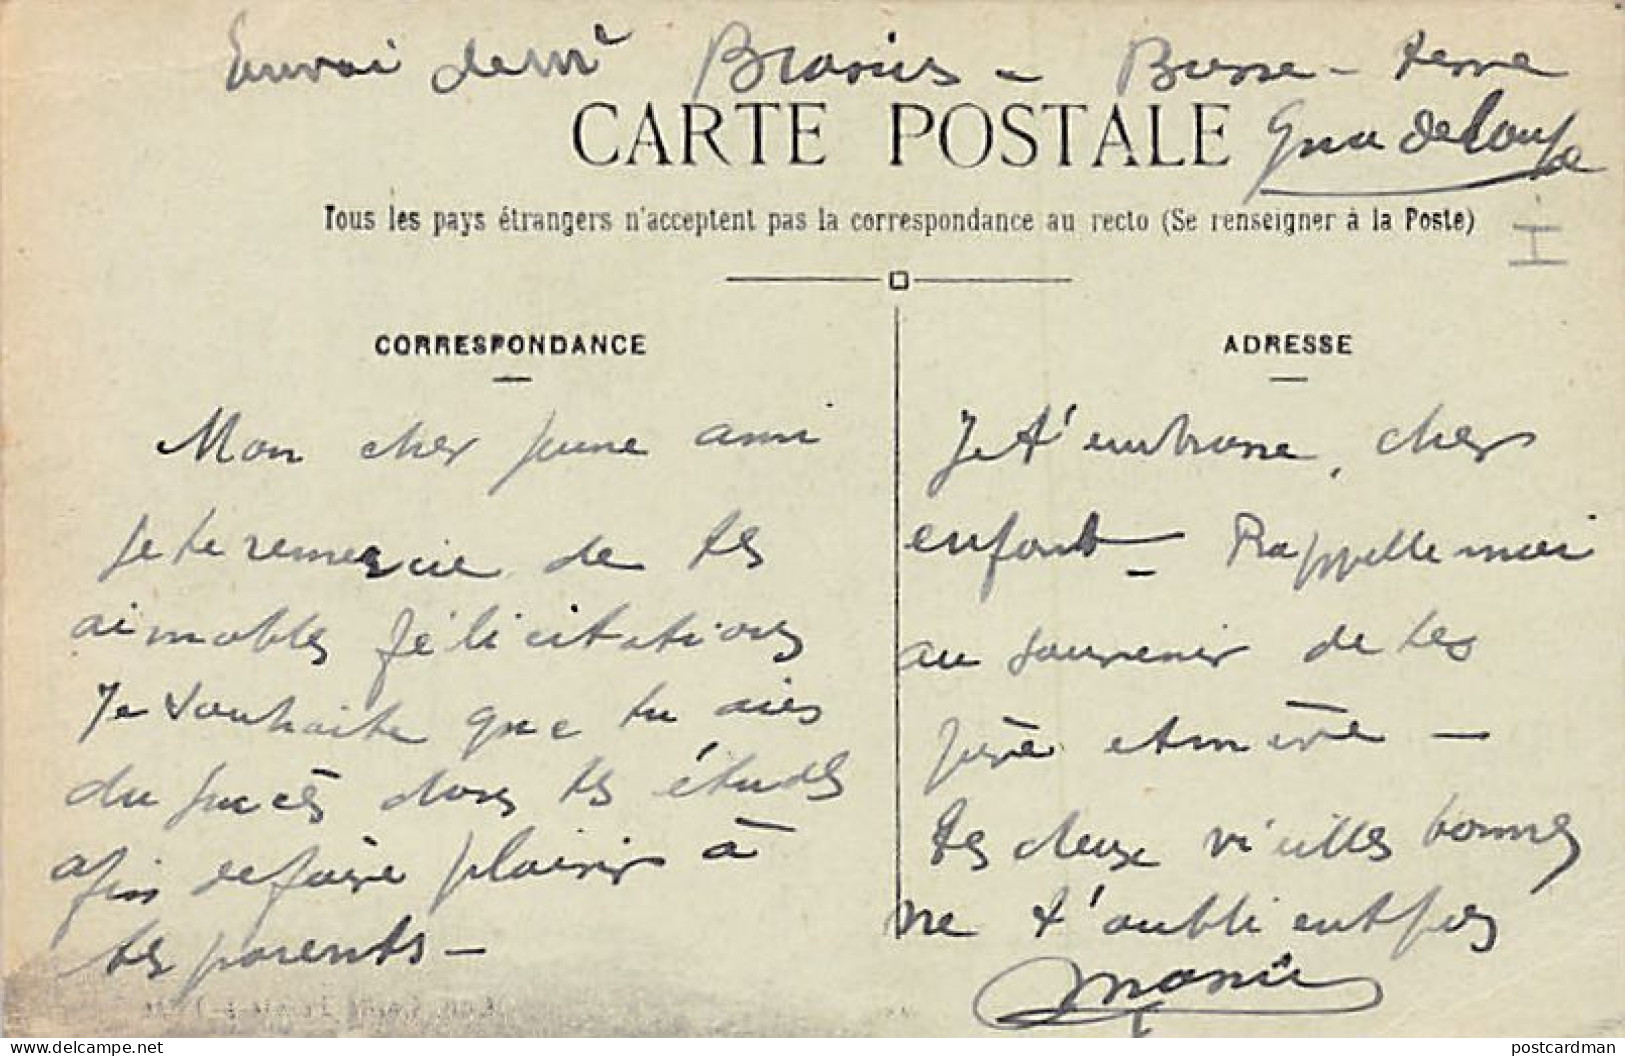 Envoi de Mr - Basse-terre
CARTE POSTALE Guadeloupe
Tous les pays étrangers n'acceptent pas la correspondance au recto (Se renseigner à la Poste)
CORRESPONDANCE
Mon cher jeune ami
je te remercie de tes
aimables félicitations
Je souhaite que tu aies
du succès dans tes études
afin de faire plaisir à
tes parents -
ADRESSE
Je t'embrasse, cher
enfant - Rappelle moi
au souvenir de tes
père et mère -
tes deux vieilles bonnes
ne t'oublient pas
postcardman
www.delcampe.net